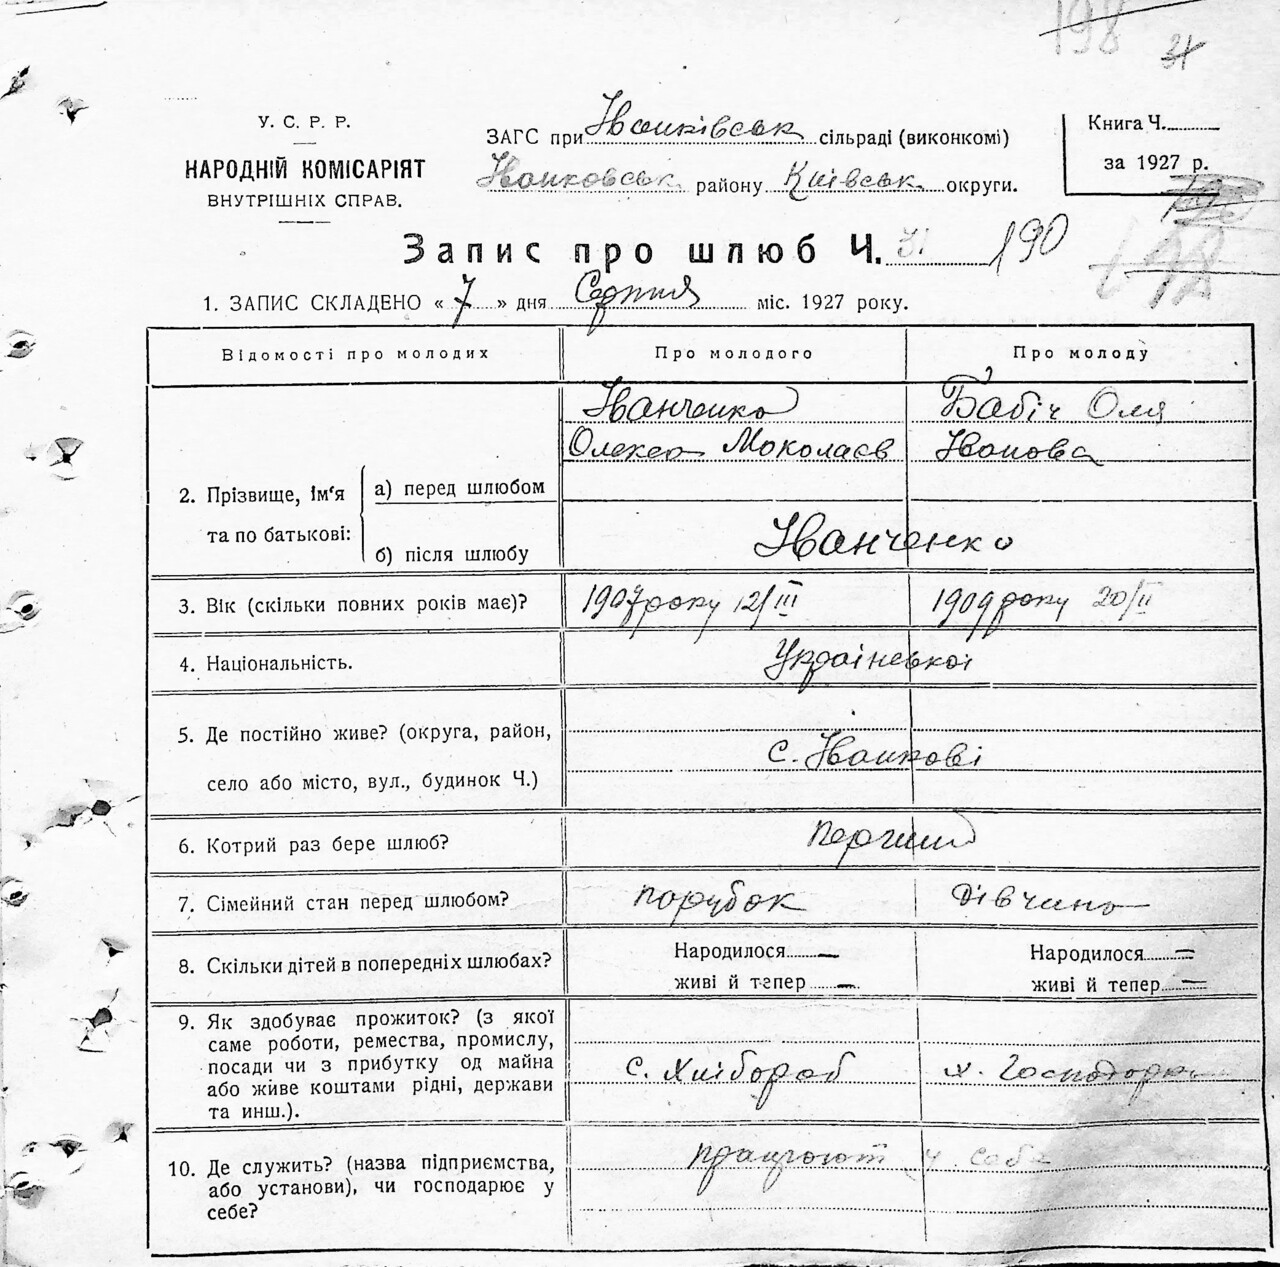 198
31
У. С. Р. Р.
НАРОДНІЙ КОМІСАРІЯТ
ВНУТРІШНІХ СПРАВ.
ЗАГС при Іванківськ сільраді (виконкомі)
Іванковськ району Київськ округи.
Книга Ч.
за 1927 р.
Запис про шлюб Ч. 31 190
198
1. ЗАПИС СКЛАДЕНО « 7 » дня Серпня міс. 1927 року.
Відомості про молодих Про молодого Про молоду
2. Прізвище, ім'я та по батькові:
а) перед шлюбом
Іванченко
Олексан Миколаєв
Бабіч Оля
Іванова
б) після шлюбу Іванченко
3. Вік (скільки повних років має)? 1907 року 12/III 1909 року 20/II
4. Національність. Української
5. Де постійно живе? (округа, район,
село або місто, вул., будинок Ч.)
с. Іванкові
6. Котрий раз бере шлюб? перший
7. Сімейний стан перед шлюбом? парубок дівчина
8. Скільки дітей в попередніх шлюбах?
Народилося —
живі й тепер —
Народилося =
живі й тепер =
9. Як здобуває прожиток? (з якої
саме роботи, ремества, промислу,
посади чи з прибутку од майна
або живе коштами рідні, держави
та инш.).
с. Хлібороб х. Господарка
10. Де служить? (назва підприємства,
або установи), чи господарює у
себе?
працюють у себе